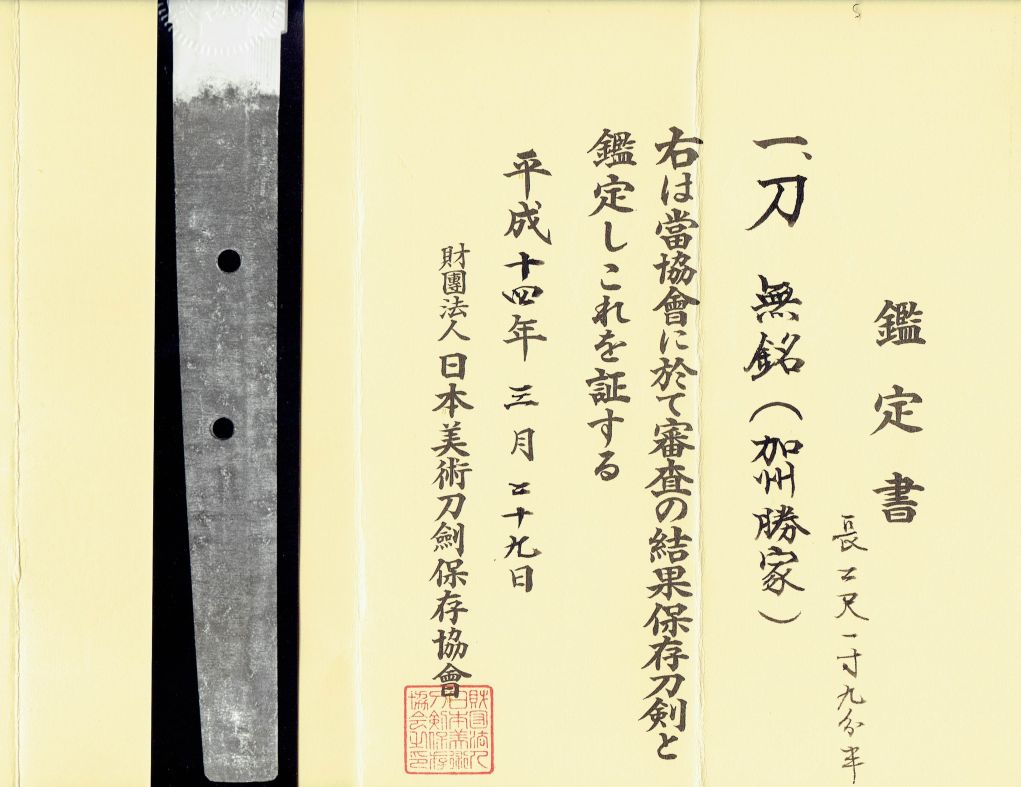 鑑定書
長二尺一寸九分半
一、刀 無銘（加州勝家）
右は當協會に於て審査の結果保存刀剣と
鑑定しこれを証する
平成十四年三月二十九日
財團法人日本美術刀劍保存協會
財団法人
日本美術
刀剣保存
協会之印